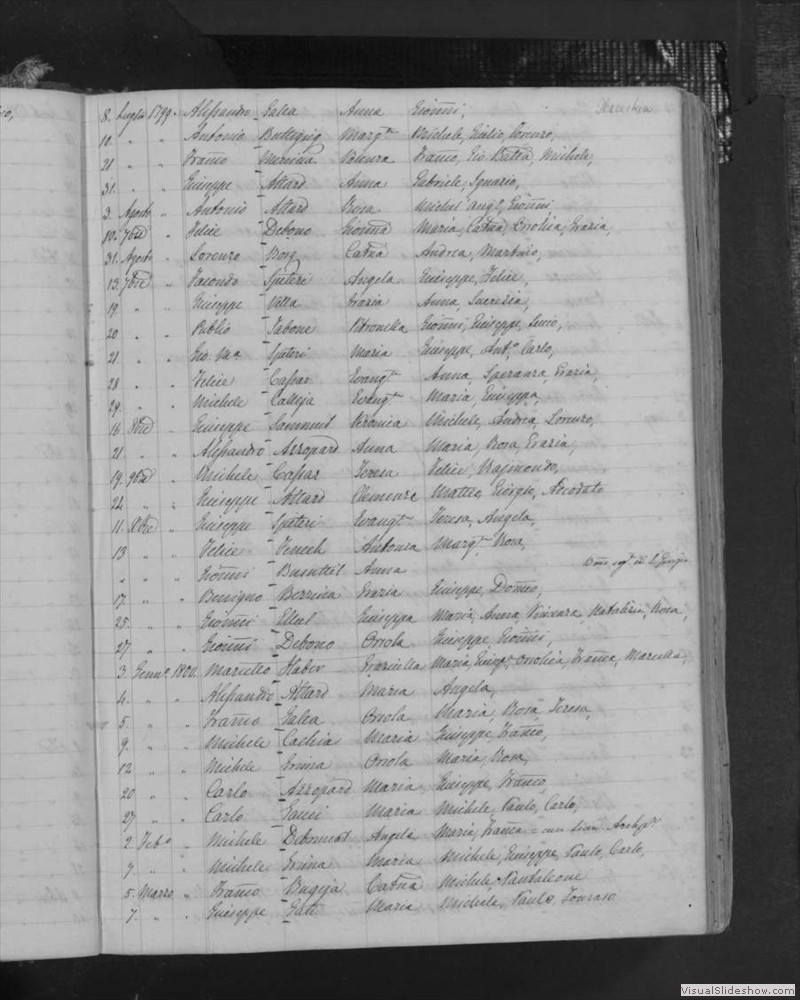 8. Luglio 1799. Alessandro Galea Anna Gioñi,
11. " " Antonio Buttigieg Margta Michele, Giulio, Lorenzo,
21 " " Franco Messina Franco, Gio Batta, Michele,
31. " " Giuseppe Attard Anna Gabriele, Ignazio,
3. Agosto " Antonio Attard Rosa Michel Ango, Gioñi
10. 7bre " Felice Debono Gioñna Maria, Catña, Orsolica, Grazia,
31. Agosto " Lorenzo Borg Catña Andrea, Martino,
13. 7bre " Facondo Spiteri Angela Giuseppe, Felice,
19. " " Giuseppe Vella Grazia Anna, Lucrezia,
20. " " Publio Tabone Petronella Gioñi, Giuseppe,
21. " " Gio. Ma. Spiteri Maria Giuseppe, Anto. Carlo,
28 " " Felice Cassar Evangta Anna, Speranza, Grazia,
29. " " Michele Calleja Evangta Maria, Giuseppa,
16. 8bre " Giuseppe Sammut Veronica Michele, Andrea, Lorenzo,
21. " " Alessandro Azzopard Anna Maria, Rosa, Grazia,
19. 9bre " Michele Cassar Teresa Felice, Rajmondo,
22. " " Giuseppe Attard Clemenza Matteo, Giorgio, Adeodato
11. Xbre " Giuseppe Spiteri Evangta Teresa, Angela,
13 " " Felice Antonia Margta Rosa,
" " " Gioñi Busuttil Anna
17. " " Benigno Bezzina Grazia Giuseppe, Domco,
25. " " Gioñi Ellul Giuseppa Maria, Anna, Vincenza, Natalizia, Rosa,
27 " " Gioñi Debono Orsola Giuseppe, Gioñi,
3. Genno. 1800. Marcello Haber Graziella Maria, Giuspa, Orsolica, Franca, Marcella,
4. " " Alessandro Attard Maria Angela,
5. " " Franco Galea Orsola Maria, Rosa, Teresa,
9. " " Michele Cachia Maria Giuseppe, Franco,
12 " " Michele Grima Orsola Maria, Rosa,
20 " " Carlo Azzopard Maria Giuseppe, Franco,
27 " " Carlo Gauci Maria Michele, Paulo, Carlo,
2. Febo. " Michele Debonnet Angela Maria, Franca
7 " " Michele Grima Maria Michele, Giuseppe, Paulo, Carlo,
5. Marzo " Franco Bugeja Catña Michele, Pantaleone
7. " " Giuseppe Gatt Maria Michele, Paulo, Tomaso
VisualSlideshow.com